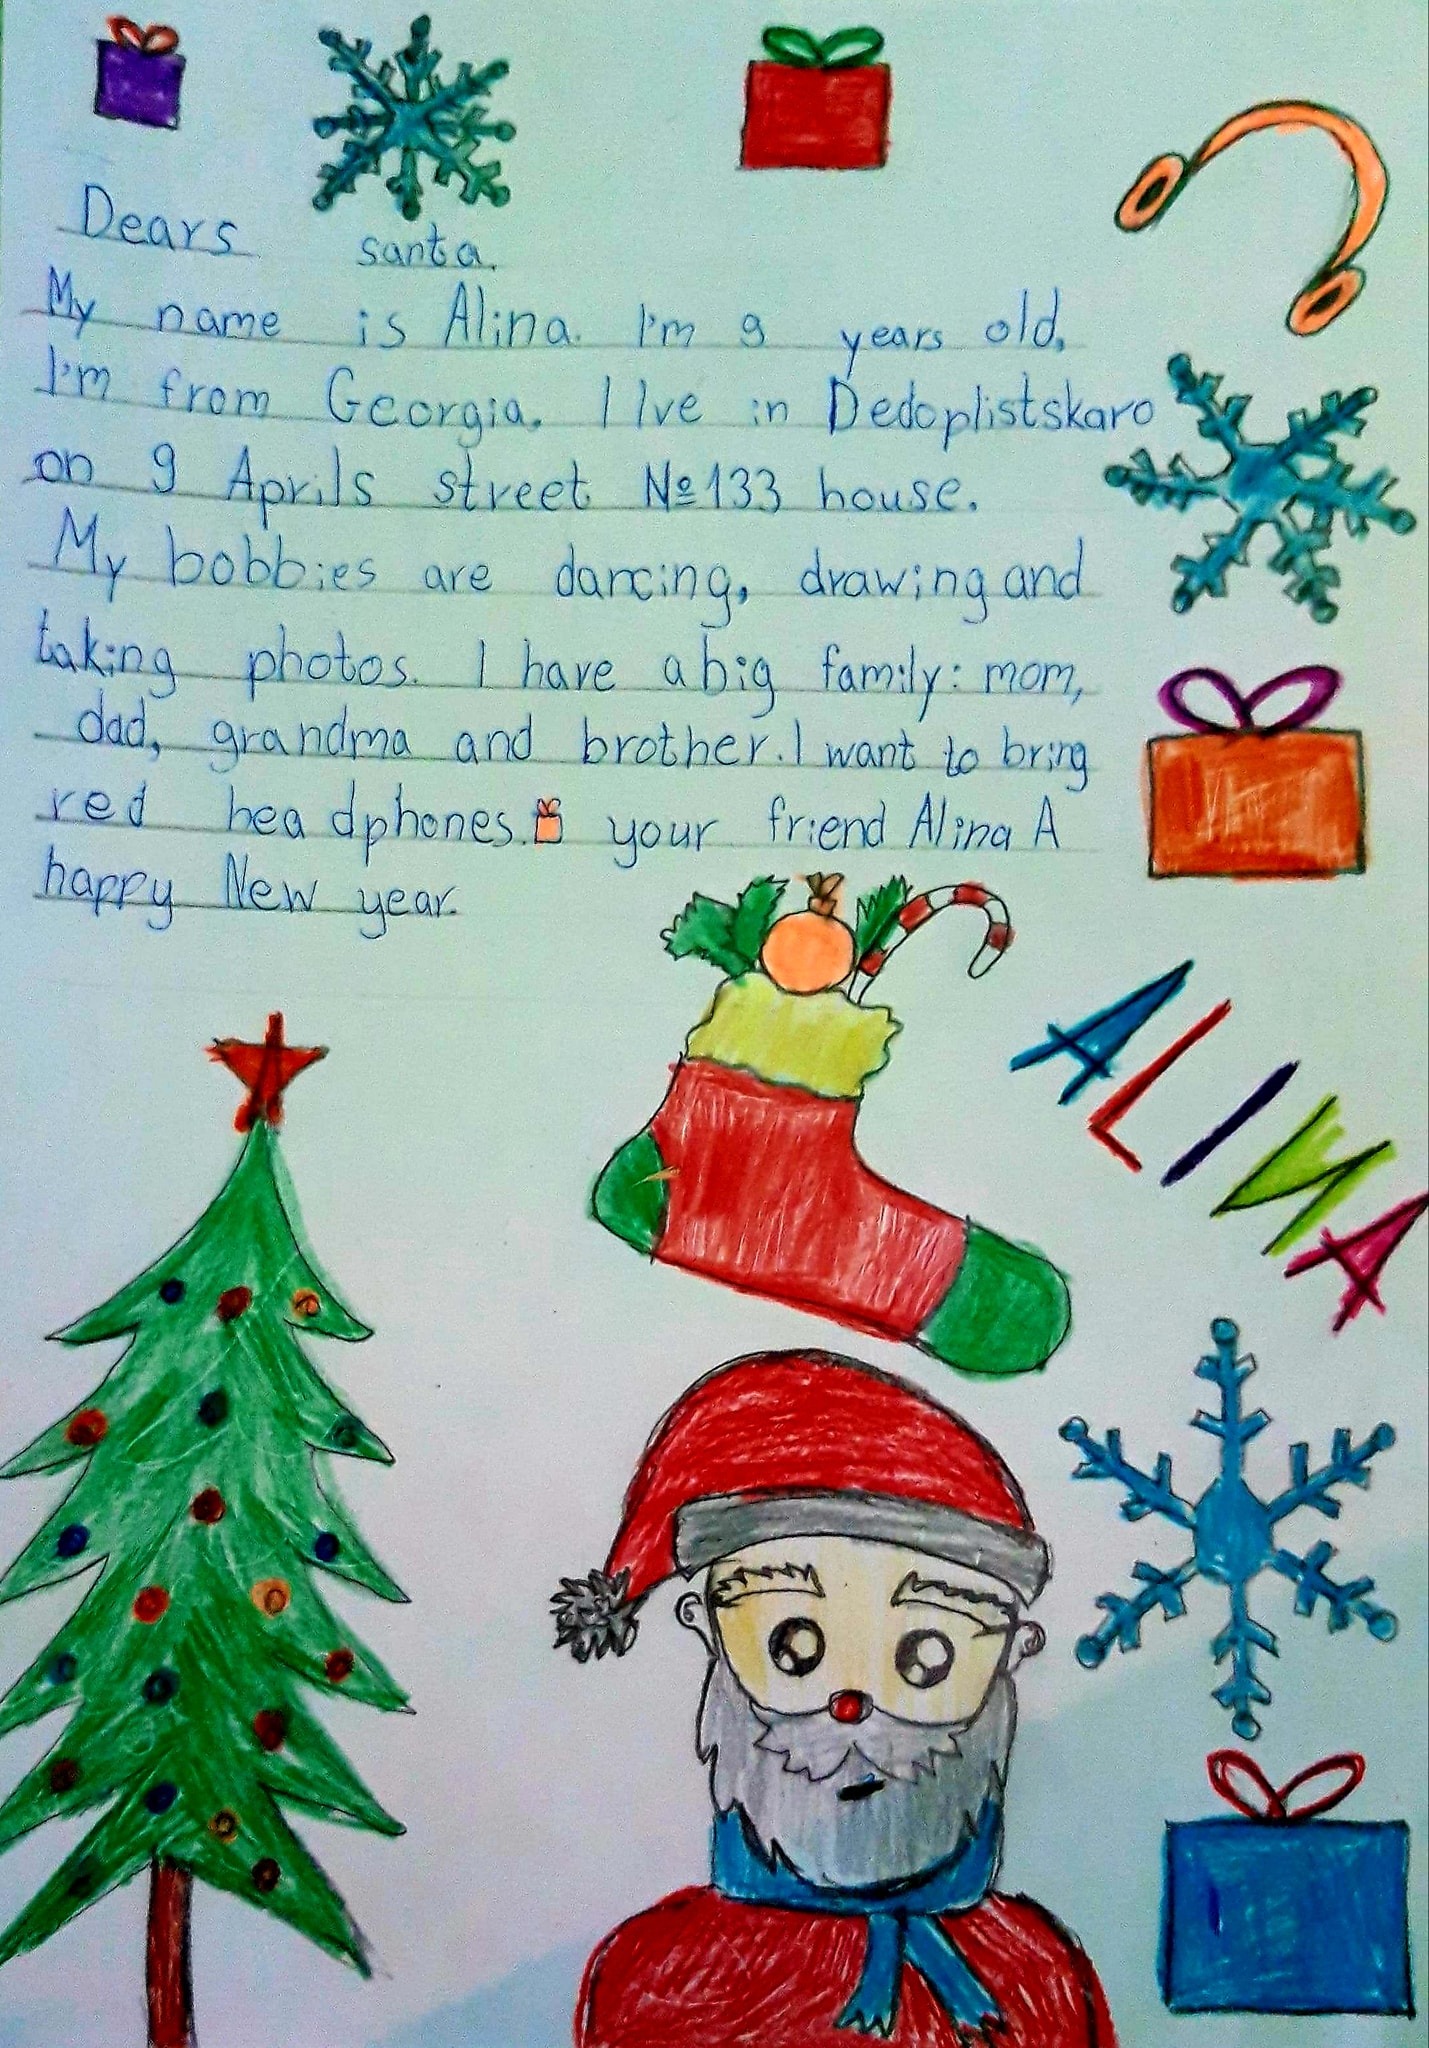 Dears santa.
My name is Alina. I'm 9 years old.
I'm from Georgia. I lve in Dedoplistskaro
on 9 Aprils street №133 house.
My bobbies are dancing, drawing and
taking photos. I have a big family: mom,
dad, grandma and brother. I want to bring
red headphones. your friend Alina A
happy New year.
ALINA